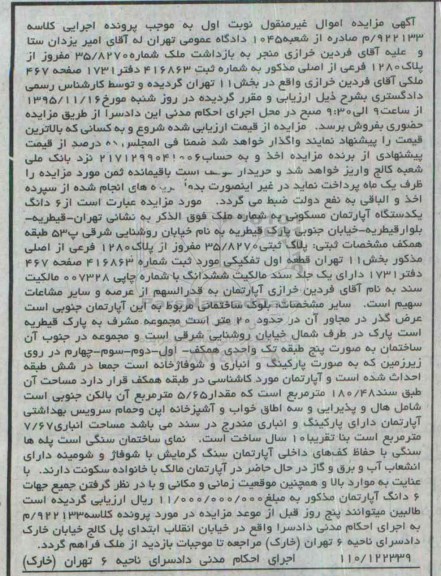 آگهی مزایده اموال غیرمنقول نوبت اول به موجب پرونده اجرایی کلاسه
۹۲۲۱۳۳/م صادره از شعبه۱۰۴۵ دادگاه عمومی تهران له آقای امیر یزدان ستا
و علیه آقای فردین خرازی منجر به بازداشت ملک شماره۳۵/۸۲۷۰ مفروز از
پلاک۱۲۸۰ فرعی از اصلی مذکور به شماره ثبت ۴۱۶۸۶۳ دفتر۱۷۳۱ صفحه ۴۶۷
ملکی آقای فردین خرازی واقع در بخش۱۱ تهران گردیده و توسط کارشناس رسمی
دادگستری بشرح ذیل ارزیابی و مقرر گردیده در روز شنبه مورخ۱۳۹۵/۱۱/۱۶
از ساعت۹ الی۹:۳۰ صبح در محل اجرای احکام مدنی این دادسرا از طریق مزایده
حضوری بفروش برسد. مزایده از قیمت ارزیابی شده شروع و به کسانی که بالاترین
قیمت را پیشنهاد نمایند واگذار خواهد شد ضمنا فی المجلس، ده درصد از قیمت
پیشنهادی از برنده مزایده اخذ و به حساب نزد بانک ملی
شعبه کالج واریز خواهد شد و خریدار است باقیمانده ثمن مورد مزایده را
ظرف یک ماه پرداخت نماید در غیر اینصورت های انجام شده از سپرده
اخذ و الباقی به نفع دولت ضبط می گردد. مورد مزایده عبارت است از۶ دانگ
یکدستگاه آپارتمان مسکونی به شماره ملک فوق الذکر به نشانی تهران-قیطریه-
بلوارقیطریه-خیابان جنوبی پارک قیطریه به نام خیابان روشنایی شرقی پ۵۳ طبقه
همکف مشخصات ثبتی: پلاک ثبتی۳۵/۸۲۷۰ مفروز از پلاک۱۲۸۰ فرعی از اصلی
مذکور بخش۱۱ تهران قطعه اول تفکیکی مورد ثبت شماره ۴۱۶۸۶۳ صفحه ۴۶۷
دفتر۱۷۳۱ دارای یک جلد سند مالکیت ششدانگ با شماره چاپی ۰۰۷۳۲۸ مالکیت
سند به نام آقای فردین خرازی آپارتمان به قدرالسهم از عرصه و سایر مشاعات
سهیم است. سایر مشخصات: بلوک ساختمانی مربوط به این آپارتمان جنوبی است
عرض گذر در مجاور آن در حدود ۲۰ متر است مجموعه مشرف به پارک قیطریه
است پارک در طرف شمال خیابان روشنایی شرقی است و مجموعه در جنوب آن
ساختمان به صورت پنج طبقه تک واحدی همکف- اول-دوم-سوم-چهارم در روی
زیرزمین که به صورت پارکینگ و انباری و شوفاژخانه است جمعا در شش طبقه
احداث شده است و آپارتمان مورد کاشناسی در طبقه همکف قرار دارد مساحت آن
طبق سند۱۸۰/۴۸ مترمربع است که مقدار۵/۶۵ مترمربع آن بالکن جنوبی است
شامل هال و پذیرایی و سه اطاق خواب و آشپزخانه اپن وحمام سرویس بهداشتی
آپارتمان دارای پارکینگ و انباری مندرج در سند می باشد مساحت انباری۷/۶۷
مترمربع است بنا تقریبا۱۰ سال ساخت است. نمای ساختمان سنگی است پله ها
سنگی با حفاظ کف‌های داخلی آپارتمان سنگ گرمایش با شوفاژ و شومینه دارای
انشعاب آب و برق و گاز در حال حاضر در آپارتمان مالک با خانواده سکونت دارند. با
عنایت به موارد بالا و همچنین موقعیت زمانی و مکانی و با در نظر گرفتن جمیع جهات
۶ دانگ آپارتمان مذکور به مبلغ۱۱/۰۰۰/۰۰۰/۰۰۰ ریال ارزیابی گردیده است
طالبین میتوانند پنج روز قبل از موعد مزایده در مورد پرونده کلاسه۹۲۲۱۳۳/م
به اجرای احکام مدنی دادسرا واقع در خیابان انقلاب ابتدای پل کالج خیابان خارک
دادسرای ناحیه ۶ تهران (خارک) مراجعه تا موجبات بازدید از ملک فراهم گردد.
۱۱۰/۱۲۲۳۳۹ اجرای احکام مدنی دادسرای ناحیه ۶ تهران (خارک)